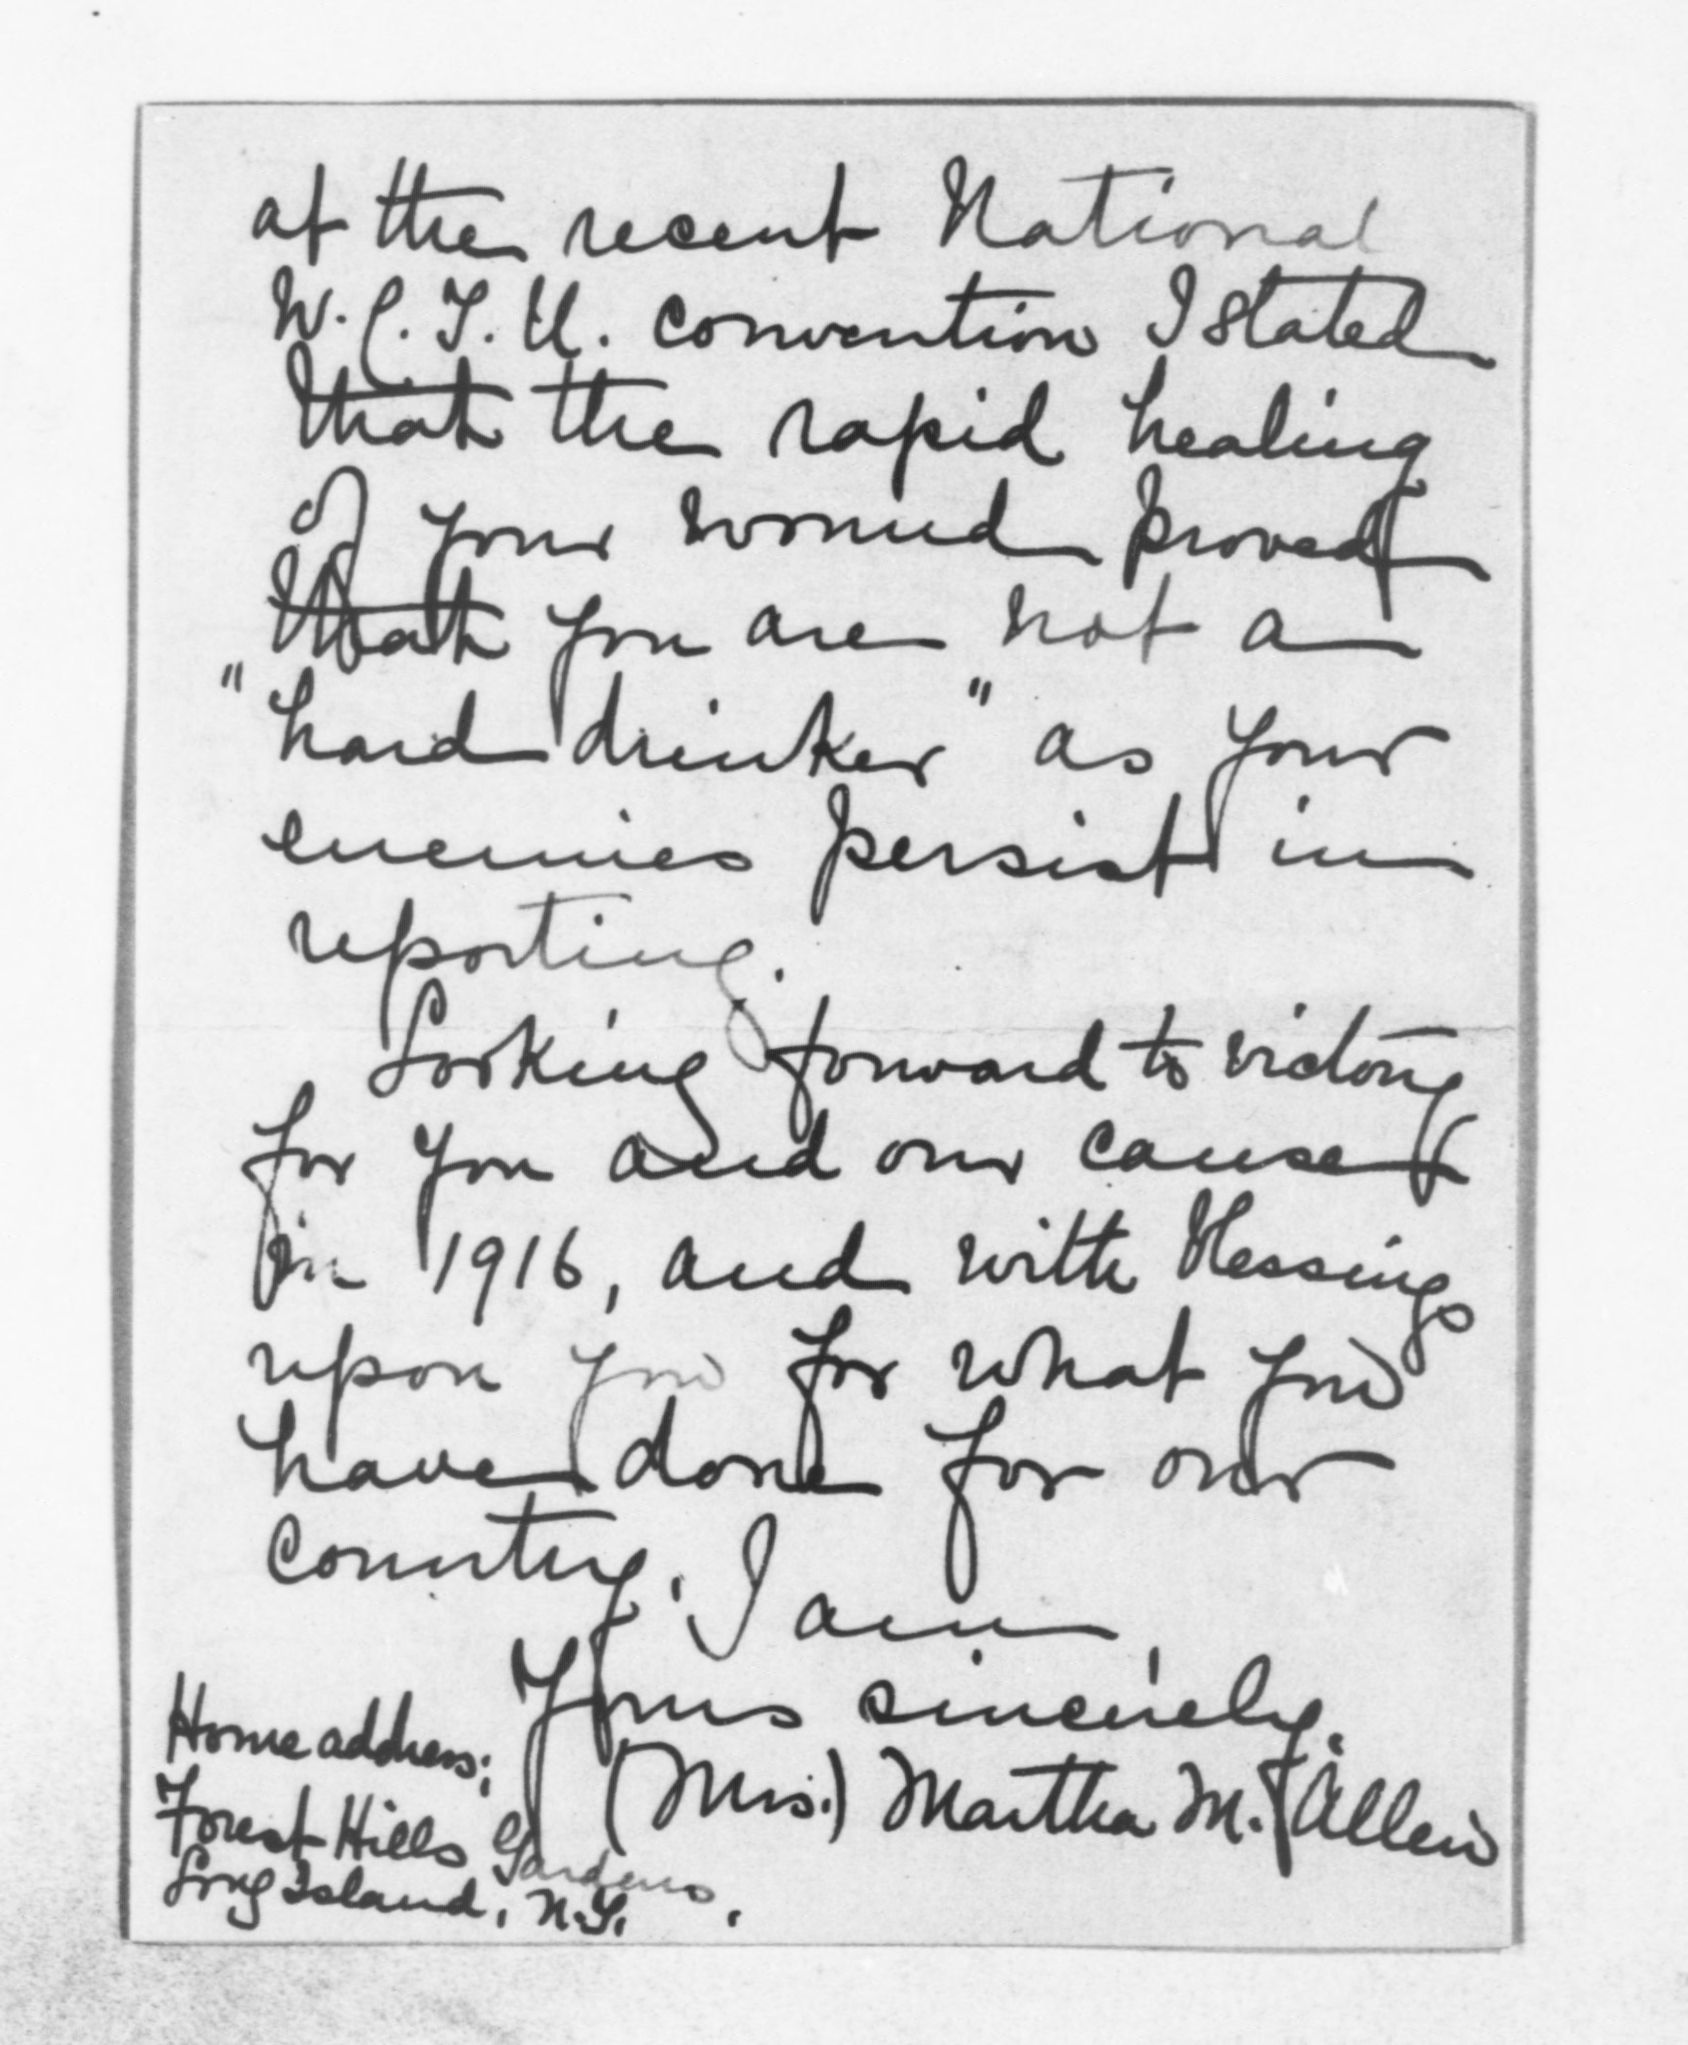 at the recent National
W.C.T.U. convention I stated
that the rapid healing
of your wound proved
that you are not a
"hard drinker" as your
enemies persist in
reporting.
Looking forward to victory
for you and our cause
in 1916, and with blessings
upon you for what you
have done for our
country, I am,
Yours sincerely,
(Mrs.) Martha M. Allen
Home address;
Forest Hills Gardens,
Long Island, N.Y.